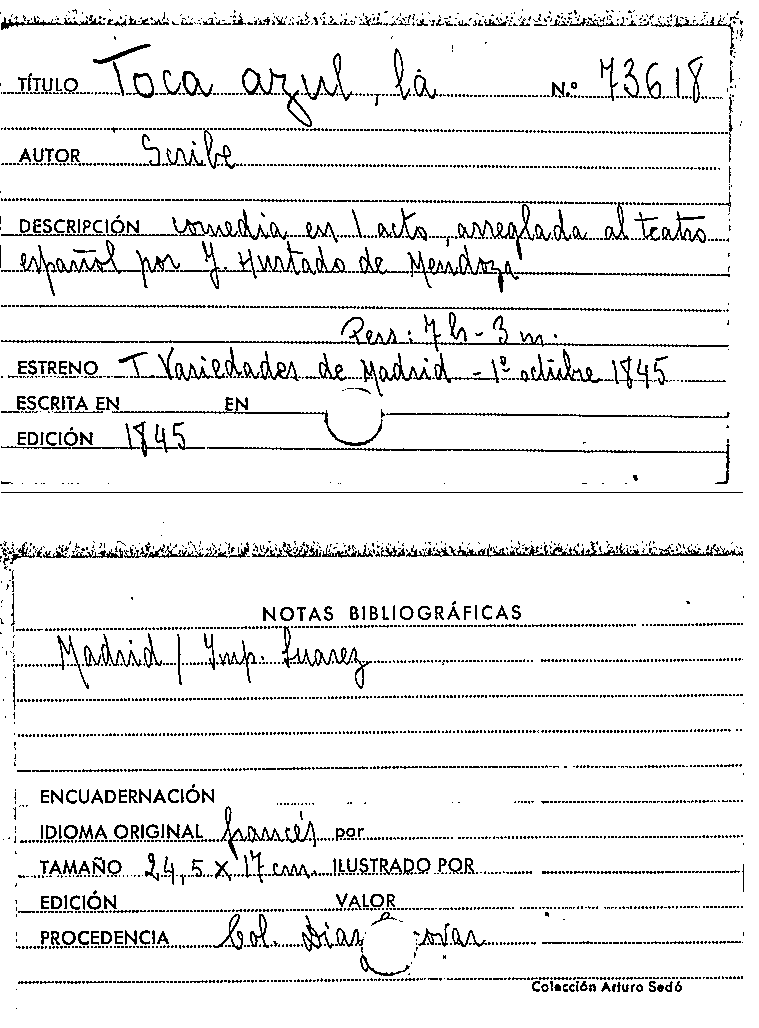 TÍTULO Toca azul, la N.º 73618
AUTOR Scribe
DESCRIPCIÓN comedia en 1 acto, arreglada al teatro
español por J. Hurtado de Mendoza
Pers: 7 h - 3 m.
ESTRENO T. Variedades de Madrid - 1º octubre 1845
ESCRITA EN EN
EDICIÓN 1845
NOTAS BIBLIOGRÁFICAS
Madrid / Imp. Suarez
ENCUADERNACIÓN
IDIOMA ORIGINAL francés por
TAMAÑO 24,5 x 17 cm. ILUSTRADO POR
EDICIÓN VALOR
PROCEDENCIA Col. Diaz
Colección Arturo Sedó